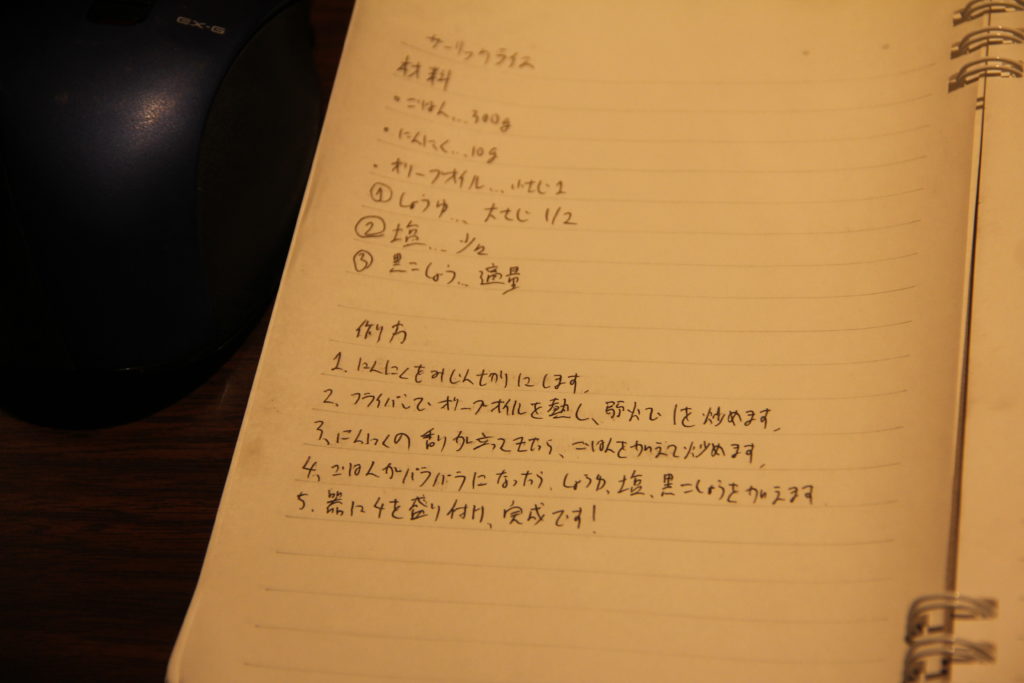 EX-G
ガーリックライス
材料
・ごはん…300g
・にんにく…10g
・オリーブオイル…小さじ1
①しょうゆ…大さじ1/2
②塩…少々
③黒こしょう…適量
作り方
1. にんにくをみじん切りにします。
2. フライパンでオリーブオイルを熱し、弱火で1を炒めます。
3. にんにくの香りが立ってきたら、ごはんを加えて炒めます。
4. ごはんがパラパラになったら、しょうゆ、塩、黒こしょうを加えます
5. 器に4を盛り付け、完成です!